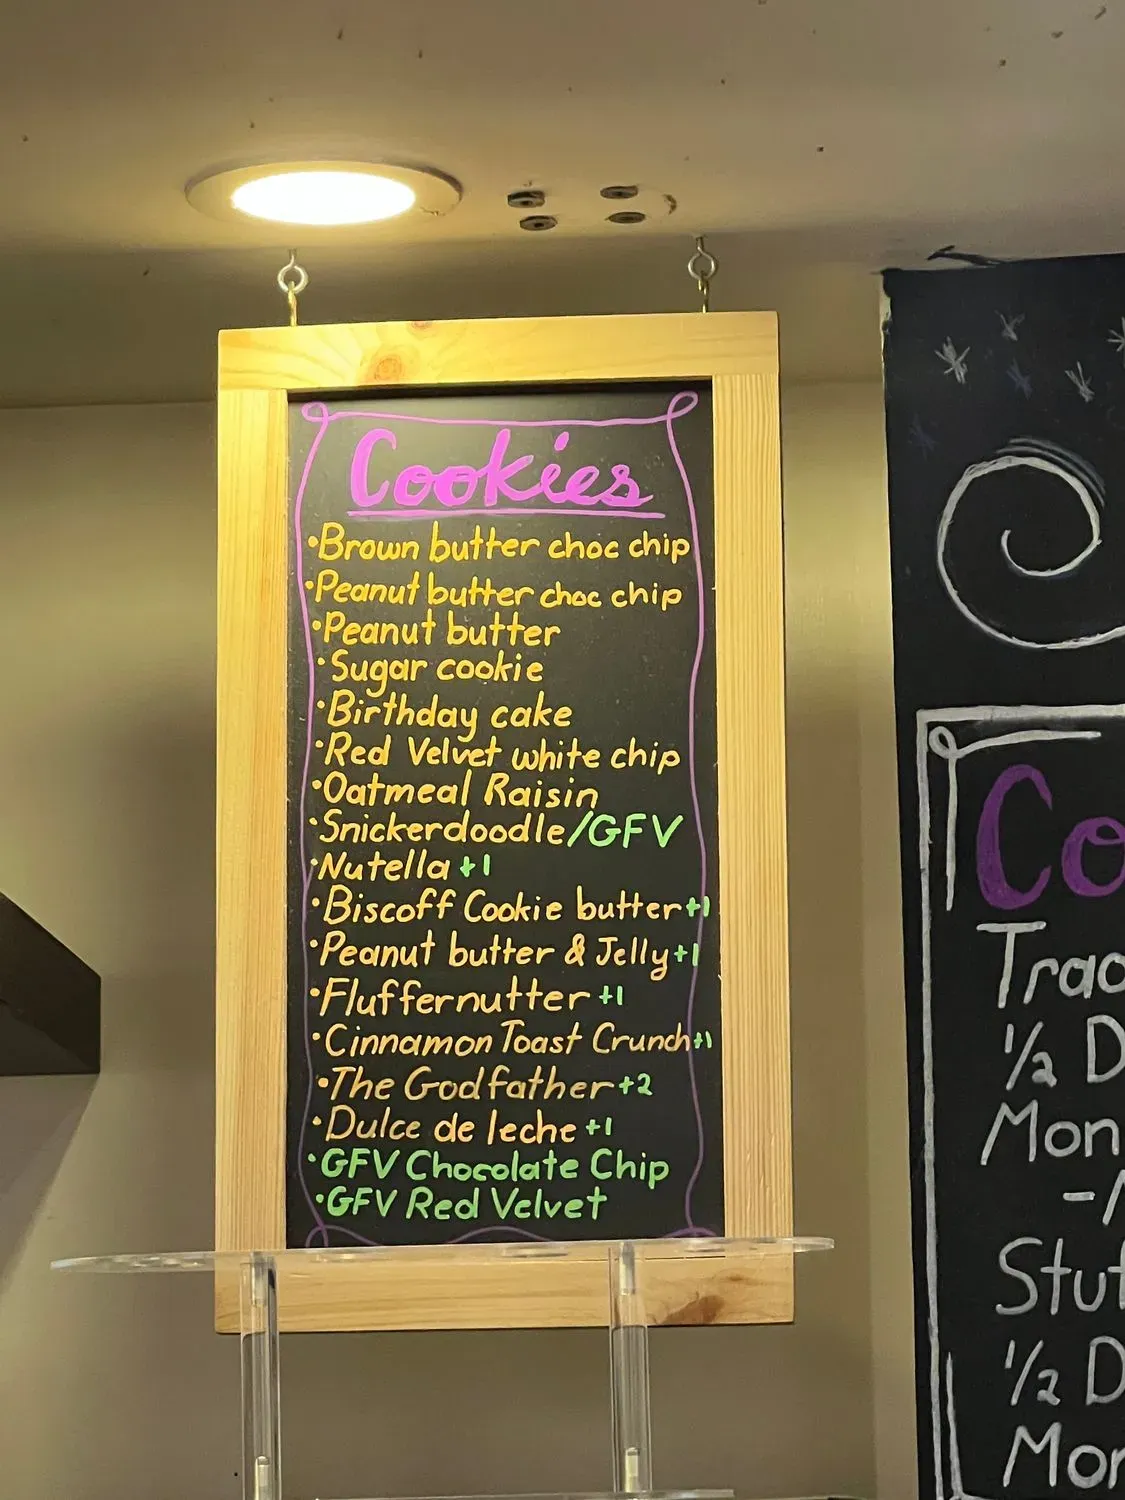 Cookies
•Brown butter choc chip
•Peanut butter choc chip
•Peanut butter
•Sugar cookie
•Birthday cake
•Red Velvet white chip
•Oatmeal Raisin
•Snickerdoodle/GFV
•Nutella +1
•Biscoff Cookie butter+1
•Peanut butter & Jelly+1
•Fluffernutter +1
•Cinnamon Toast Crunch+1
•The Godfather+2
•Dulce de leche +1
•GFV Chocolate Chip
•GFV Red Velvet
Co
Trad
1/2 D
Mon
Stuf
1/2 D
Mor